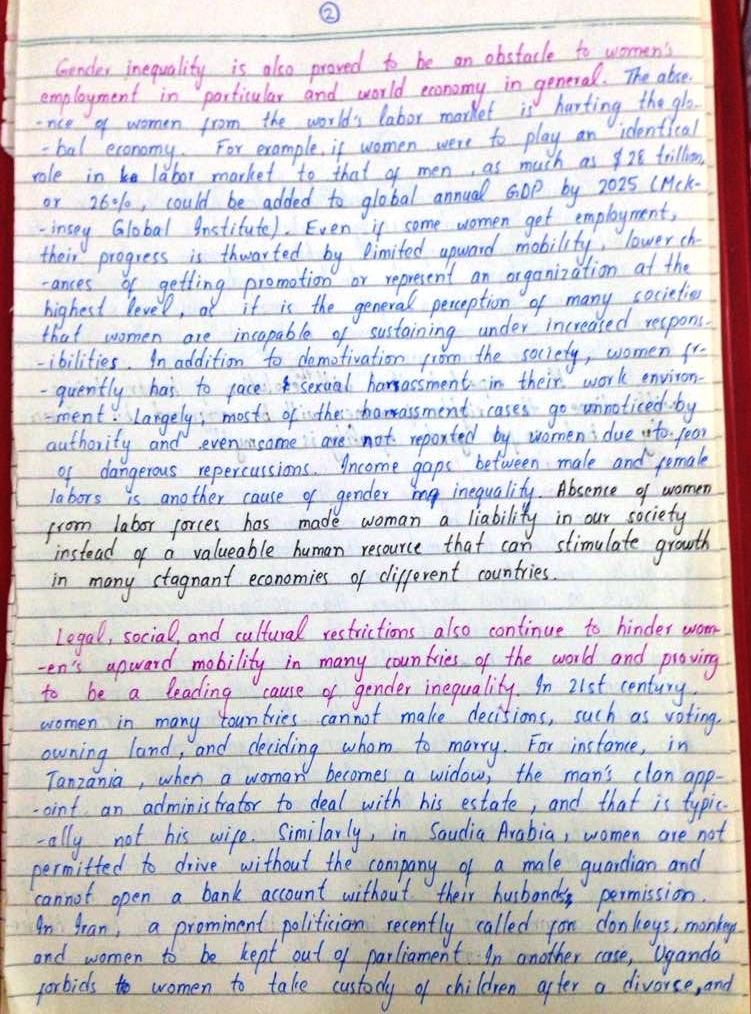 2
Gender inequality is also proved to be an obstacle to women's
employment in particular and world economy in general. The abse-
-nce of women from the world's labor market is hurting the glo-
-bal economy. For example, if women were to play an identical
role in labor market to that of men, as much as $28 trillion,
or 26%, could be added to global annual GDP by 2025 (Mck-
-insey Global Institute). Even if some women get employment,
their progress is thwarted by limited upward mobility, lower ch-
-ances of getting promotion or represent an organization at the
highest level, as it is the general perception of many societies
that women are incapable of sustaining under increased respons-
-ibilities. In addition to demotivation from the society, women fr-
-quently has to face sexual harrassment in their work environ-
-ment. Largely, most of the harrassment cases go unnoticed by
authority and even some are not reported by women due to fear
of dangerous repercussions. Income gaps between male and female
labors is another cause of gender inequality. Absence of women
from labor forces has made woman a liability in our society
instead of a valueable human resource that can stimulate growth
in many stagnant economies of different countries.
Legal, social, and cultural restrictions also continue to hinder wom-
-en's upward mobility in many countries of the world and proving
to be a leading cause of gender inequality. In 21st century,
women in many countries cannot make decisions, such as voting,
owning land, and deciding whom to marry. For instance, in
Tanzania, when a woman becomes a widow, the man's clan app-
-oint an administrator to deal with his estate, and that is typic-
-ally not his wife. Similarly, in Saudia Arabia, women are not
permitted to drive without the company of a male guardian and
cannot open a bank account without their husband's permission.
In Iran, a prominent politician recently called for donkeys, monkeys
and women to be kept out of parliament. In another case, Uganda
forbids to women to take custody of children after a divorse, and